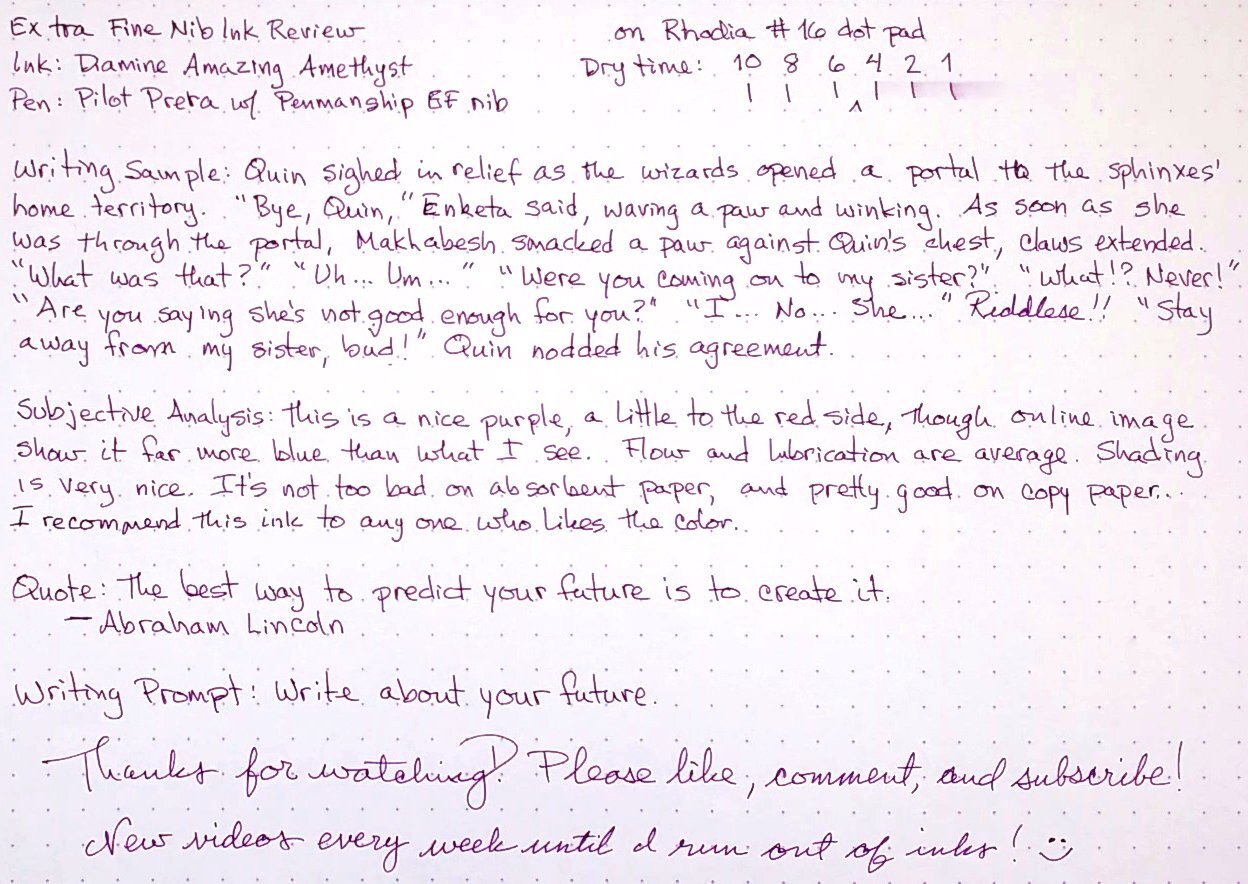 Extra Fine Nib Ink Review on Rhodia #16 dot pad
Ink: Diamine Amazing Amethyst Dry time: 10 8 6 4 2 1
Pen: Pilot Prera w/ Penmanship EF nib
Writing Sample: Quin sighed in relief as the wizards opened a portal to the sphinxes'
home territory. "Bye, Quin," Enketa said, waving a paw and winking. As soon as she
was through the portal, Makhabesh smacked a paw against Quin's chest, claws extended.
"What was that?" "Uh... Um..." "Were you coming on to my sister?" "What!? Never!"
"Are you saying she's not good enough for you?" "I... No... She..." Riddlese!! "Stay
away from my sister, bud!" Quin nodded his agreement.
Subjective Analysis: This is a nice purple, a little to the red side, though online image
show it far more blue than what I see. Flow and lubrication are average. Shading
is very nice. It's not too bad on absorbent paper, and pretty good on copy paper...
I recommend this ink to any one who likes the color.
Quote: The best way to predict your future is to create it.
- Abraham Lincoln
Writing Prompt: Write about your future.
Thanks for watching! Please like, comment, and subscribe!
New videos every week until I run out of inks! :)